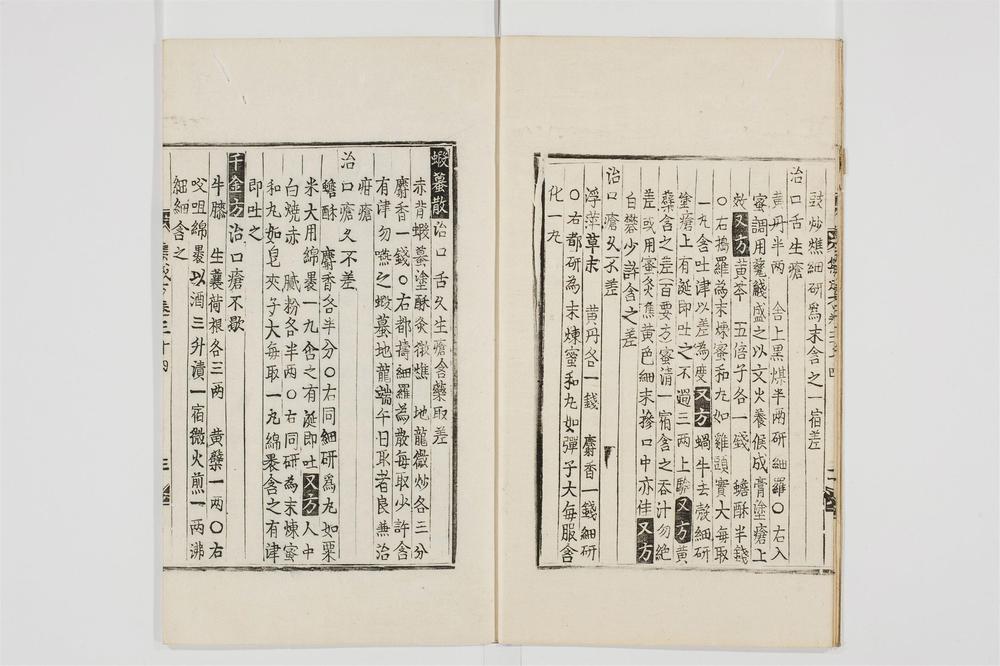 豉炒燋細研爲末含之一宿差
治口舌生瘡
黄丹半兩 舍上黑煤半兩研細羅〇右入
蜜調用甆盞盛之以文火養候成膏塗瘡上
效又方黄芩 五倍子各一錢 蟾酥半錢
〇右搗羅為末煉蜜和丸如雞頭實大每取
一丸含吐津以差為度又方蝸牛去殻細研
塗瘡上有涎即吐之不過三兩上驗又方黄
蘗含之差百要方蜜漬一宿含之吞汁勿絶
差或用蜜炙燋黄色細末摻口中亦佳又方
白礬少許含之差
治口瘡久不差
浮萍草末 黄丹各一錢 麝香一錢細研
〇右都研為末煉蜜和丸如彈子大每服含
化一丸
蝦蟇散治口舌久生瘡含藥取差
赤背蝦蟇塗酥灸微燋 地龍微炒各三分
麝香一錢〇右都擣細羅為散每取少許含
有津勿嚥之蝦蟇地龍端午日取者良兼治
疳瘡
治口瘡久不差
蟾酥 麝香各半分〇右同細研爲丸如粟
米大用綿裹一丸含之有涎即吐又方人中
白燒赤 膩粉各半兩〇右同研為末煉蜜
和丸如皂莢子大每取一丸綿裹含之有津
即吐之
千金方治口瘡不歇
牛膝 生蘘荷根各三兩 黄蘗一兩〇右
㕮咀綿裹以酒三升漬一宿微火煎一兩沸
細細含之